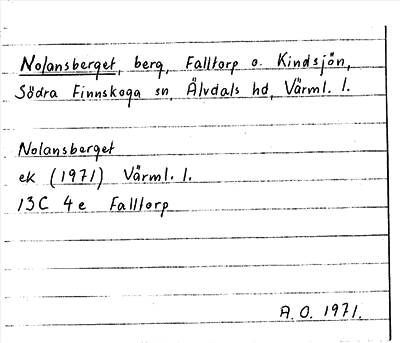 Nolansberget, berg, Falltorp o. Kindsjön,
Södra Finnskoga sn, Älvdals hd, Värml. l.
Nolansberget
ek (1971) Värml. l.
13C 4e Falltorp
A.O. 1971.